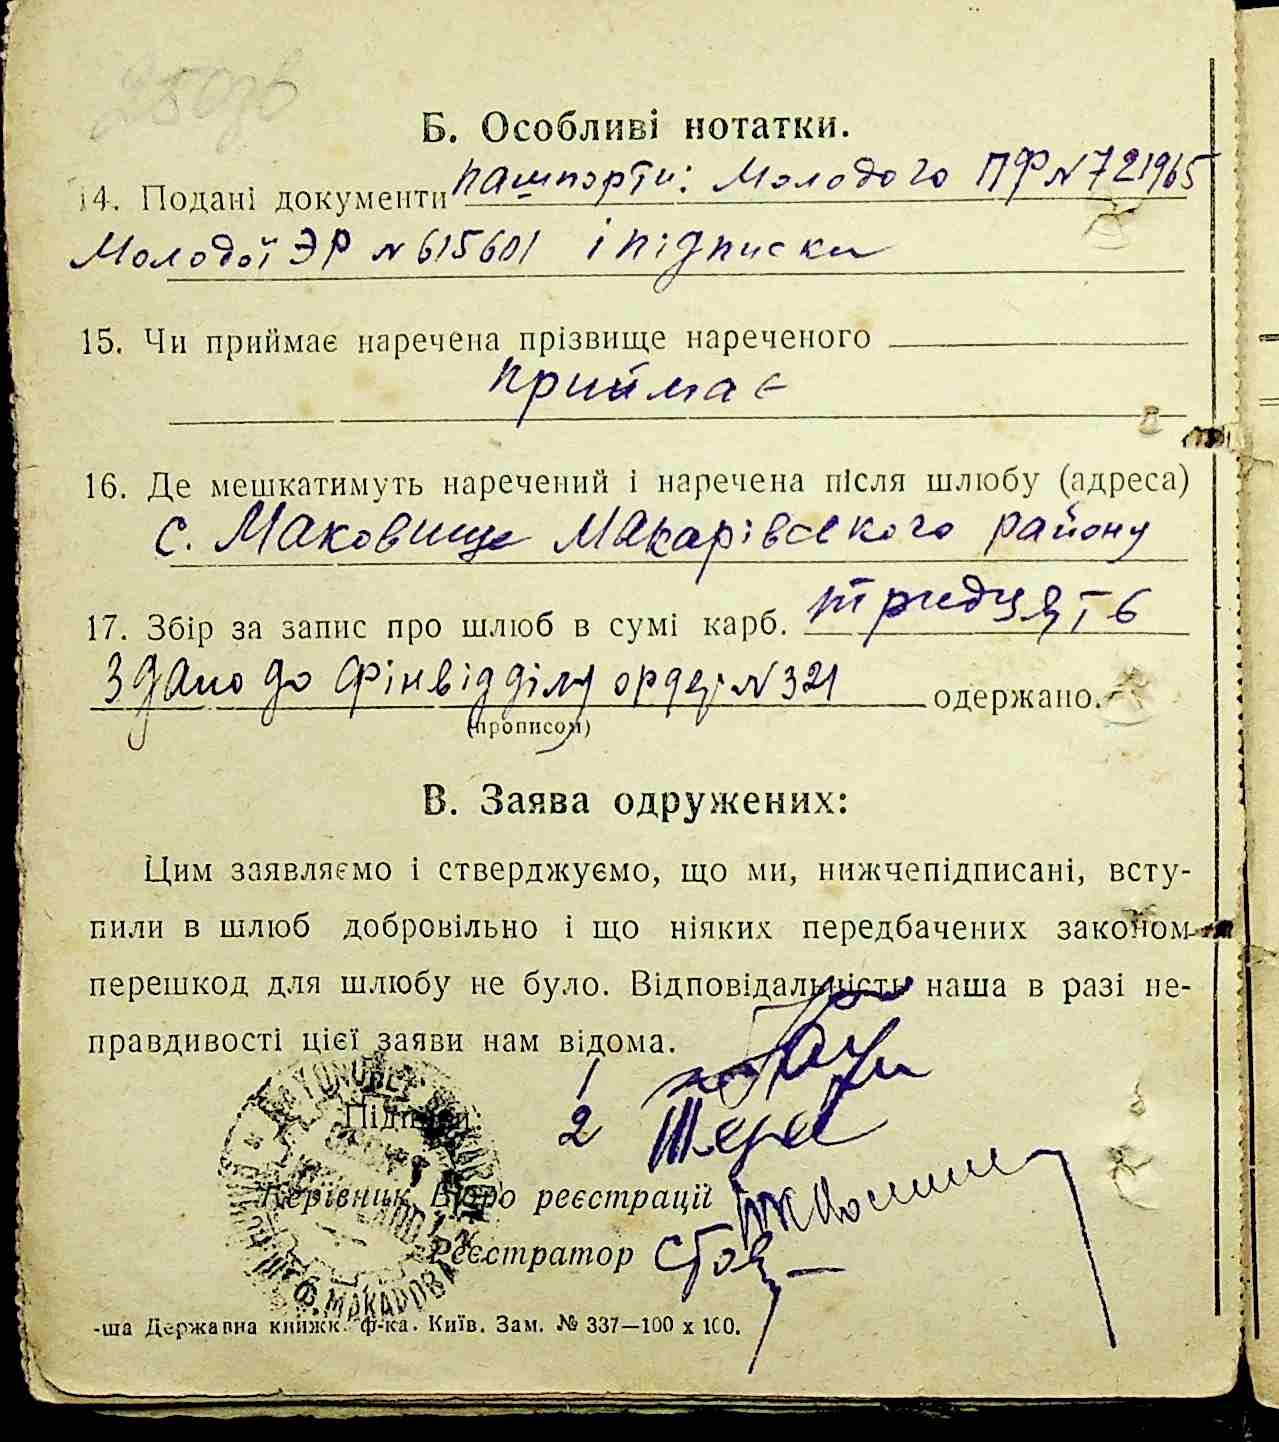 Б. Особливі нотатки.
14. Подані документи пашпорти: Молодого ПФ № 721965
Молодої ЭР № 615601 і підписки
15. Чи приймає наречена прізвище нареченого
приймає
16. Де мешкатимуть наречений і наречена після шлюбу (адреса)
с. Маковище Макарівського району
17. Збір за запис про шлюб в сумі карб. тридцять
здано до фінвідділу ордер № 321 одержано.
(прописом)
В. Заява одружених:
Цим заявляємо і стверджуємо, що ми, нижчепідписані, всту-
пили в шлюб добровільно і що ніяких передбачених законом
перешкод для шлюбу не було. Відповідальність наша в разі не-
правдивості цієї заяви нам відома.
1
Підписи: 2
Керівник Бюро реєстрації
Реєстратор
-ша Державна книжк. ф-ка. Київ. Зам. № 337—100 х 100.